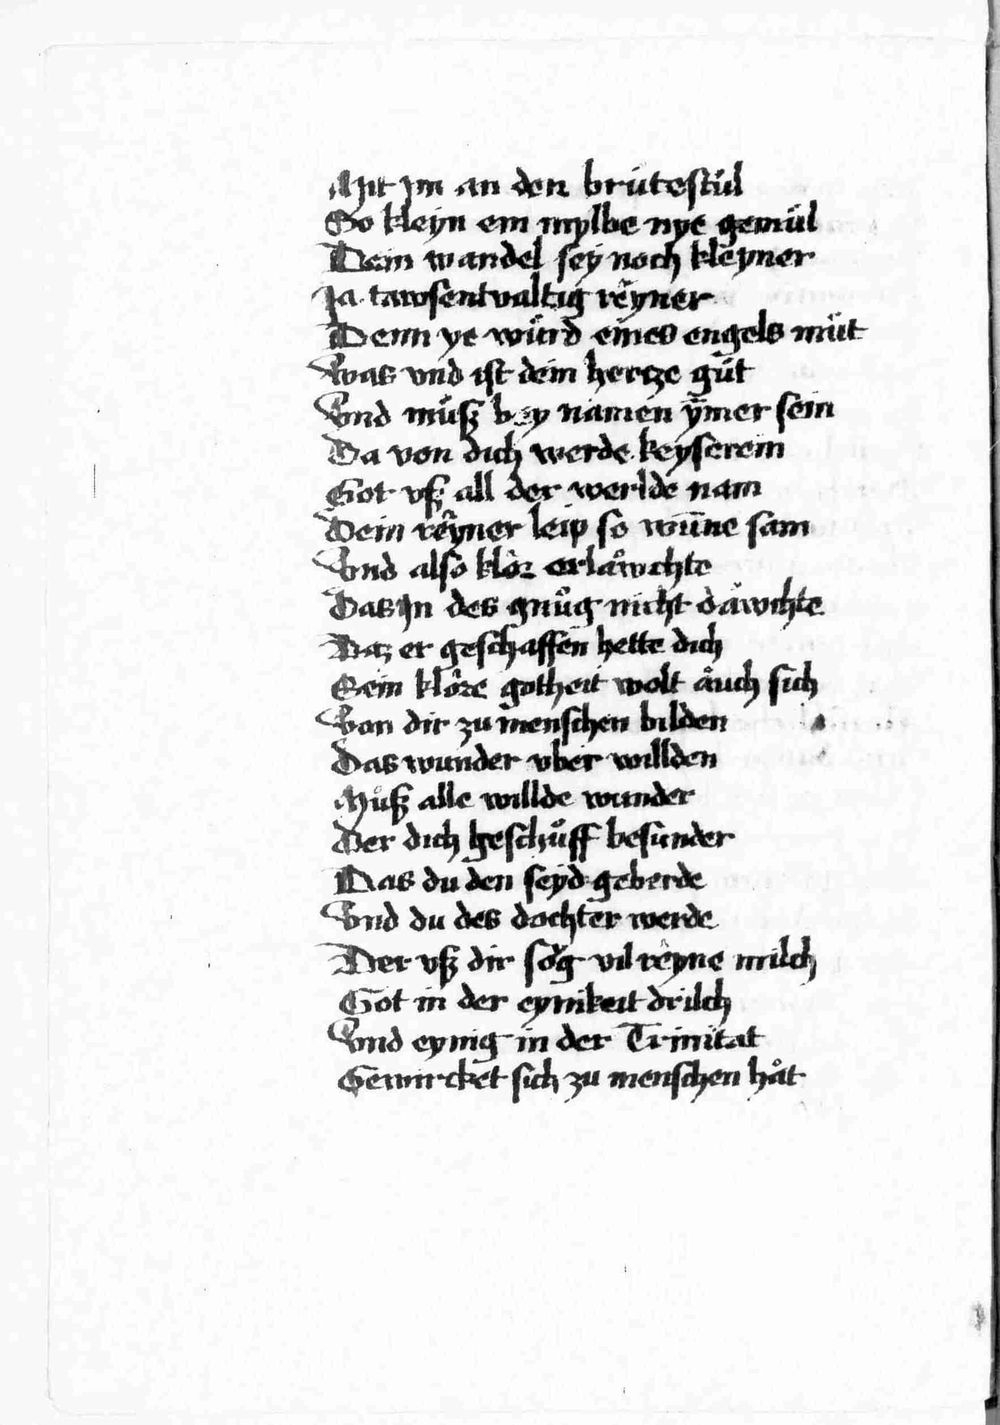 Mit Im an den brütestül
So kleyn ein mylbe nye gemül
Dein wandel sey noch kleyner
Ja tawsentualtig reyner
Denn ye würd eines engels müt
Was vnd ist dein hertze güt
Vnd müß bey namen ymer sein
Da von dich werde keyserein
Got vß all der werlde nam
Dein reyner leip so wūne sam
Vnd also klor erlawchte
Das In des gnůg nicht dawchte
Daz er geschaffen hette dich
Sein klore gotheit wolt auch sich
Von dir zu menschen bilden
Das wunder vber willden
Můß alle willde wunder
Der dich geschůff besunder
Das du den seyd geberde
Vnd du des dochter werde
Der vß dir sog vil reyne milch
Got in der eynikeit drilch
Vnd eynig in der Trinitat
Gewircket sich zu menschen håt